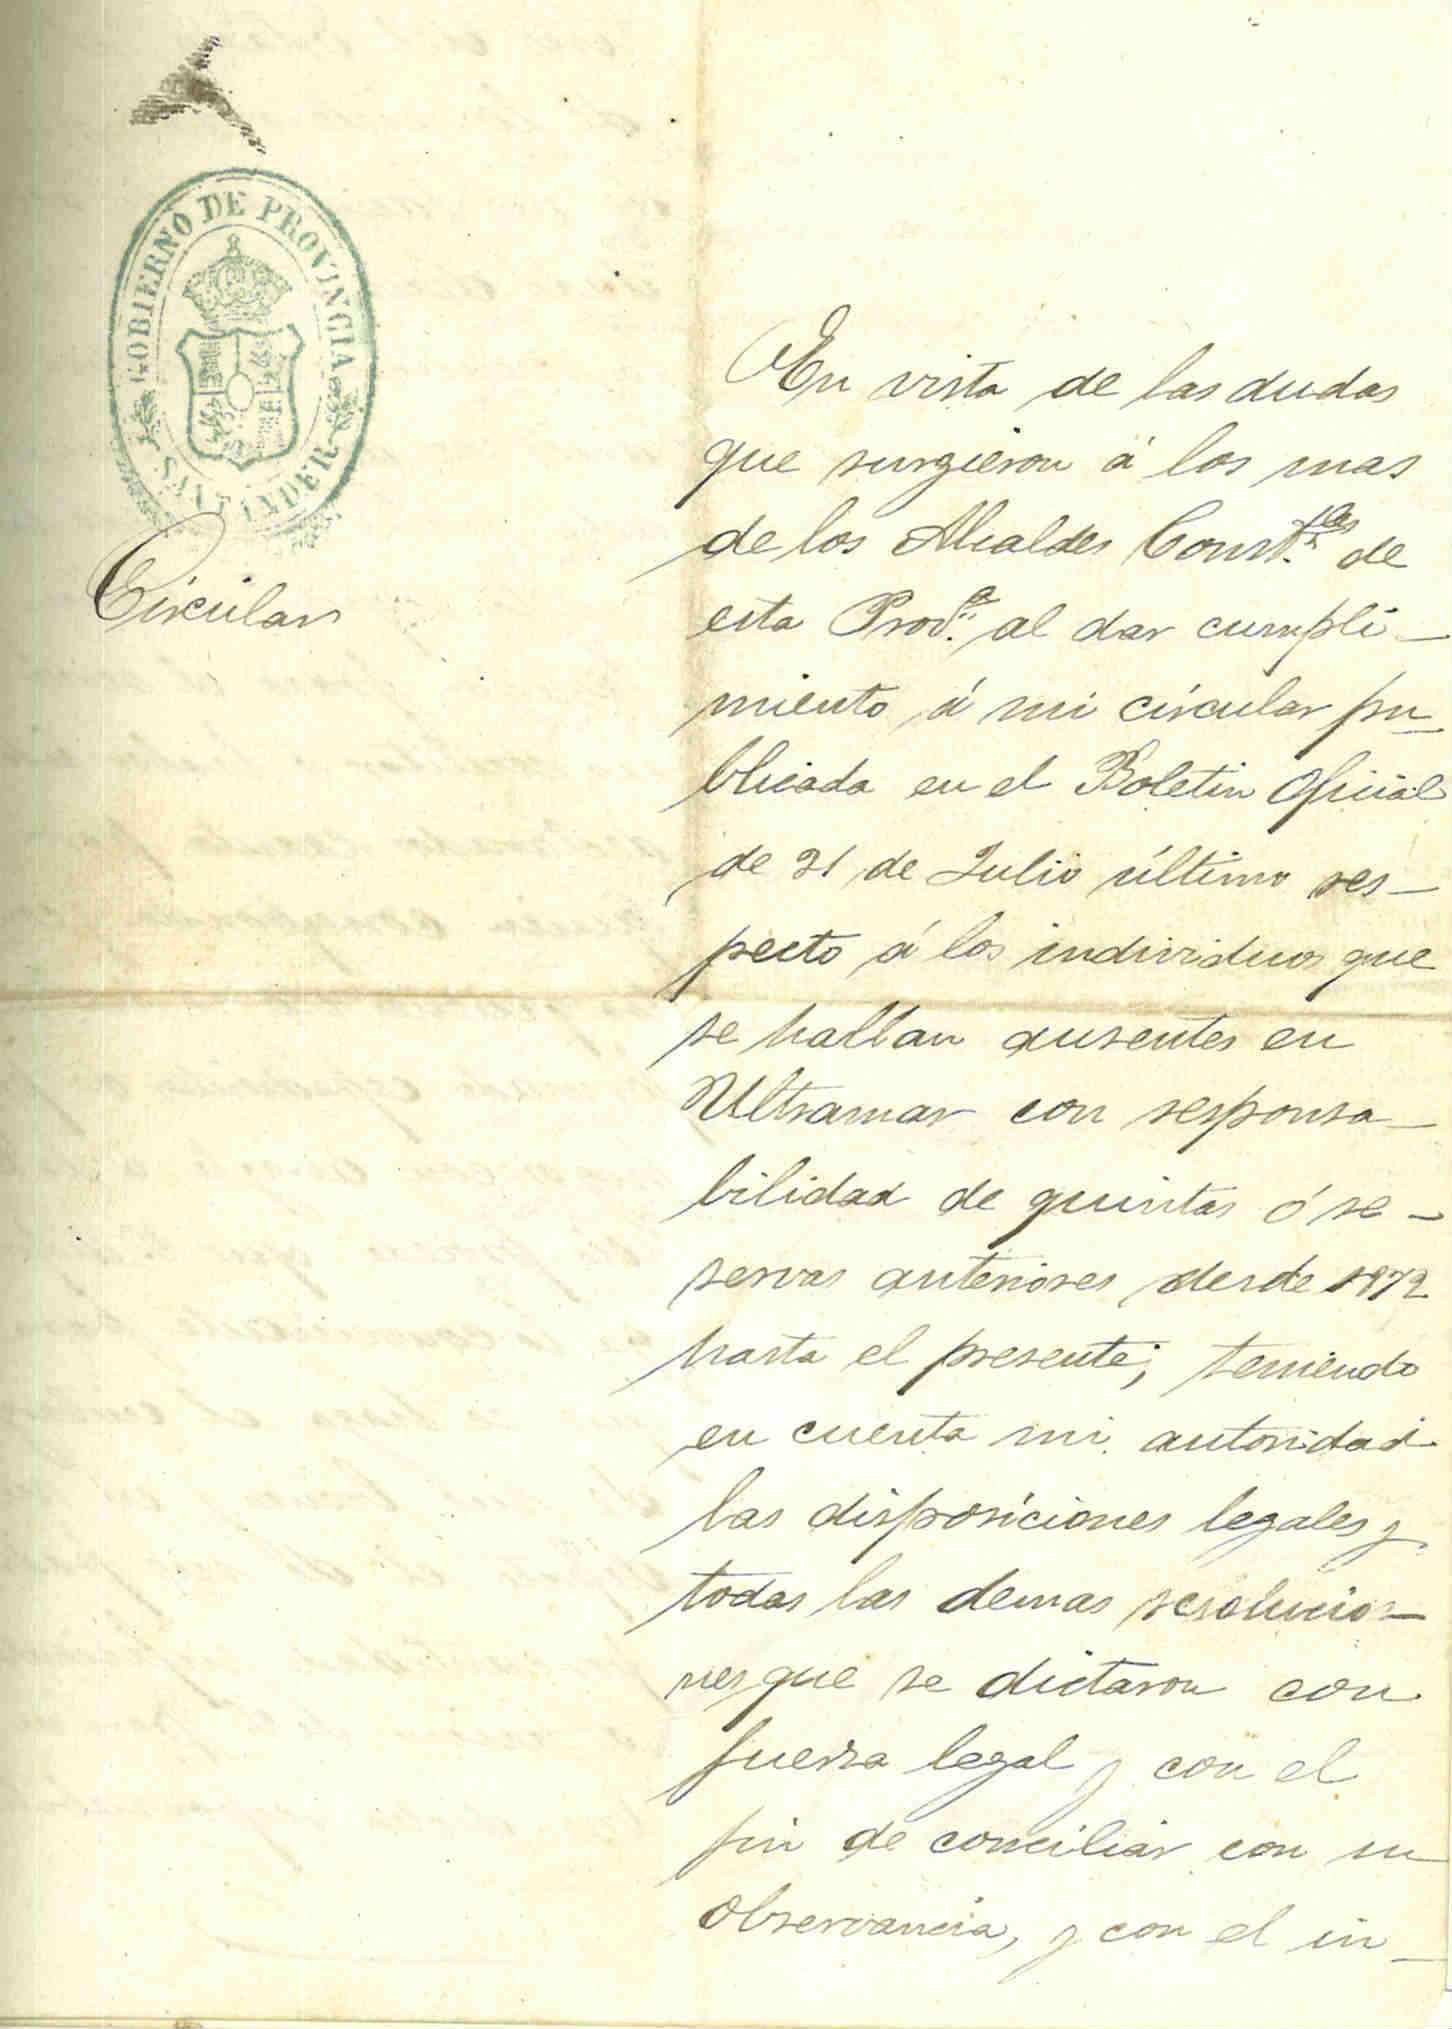 GOBIERNO DE PROVINCIA
SANTANDER
Circular
En vista de las dudas
que surgieron á los mas
de los Alcaldes Const.les de
esta Prov.a al dar cumpli-
miento á mi circular pu-
blicada en el Boletin Oficial
de 21 de Julio último res-
pecto á los individuos que
se hallan ausentes en
Ultramar con responsa-
bilidad de quintas ó re-
servas anteriores desde 1872
hasta el presente; teniendo
en cuenta mi autoridad
las disposiciones legales y
todas las demas resolucio-
nes que se dictaron con
fuerza legal y con el
fin de conciliar con su
observancia, y con el in-